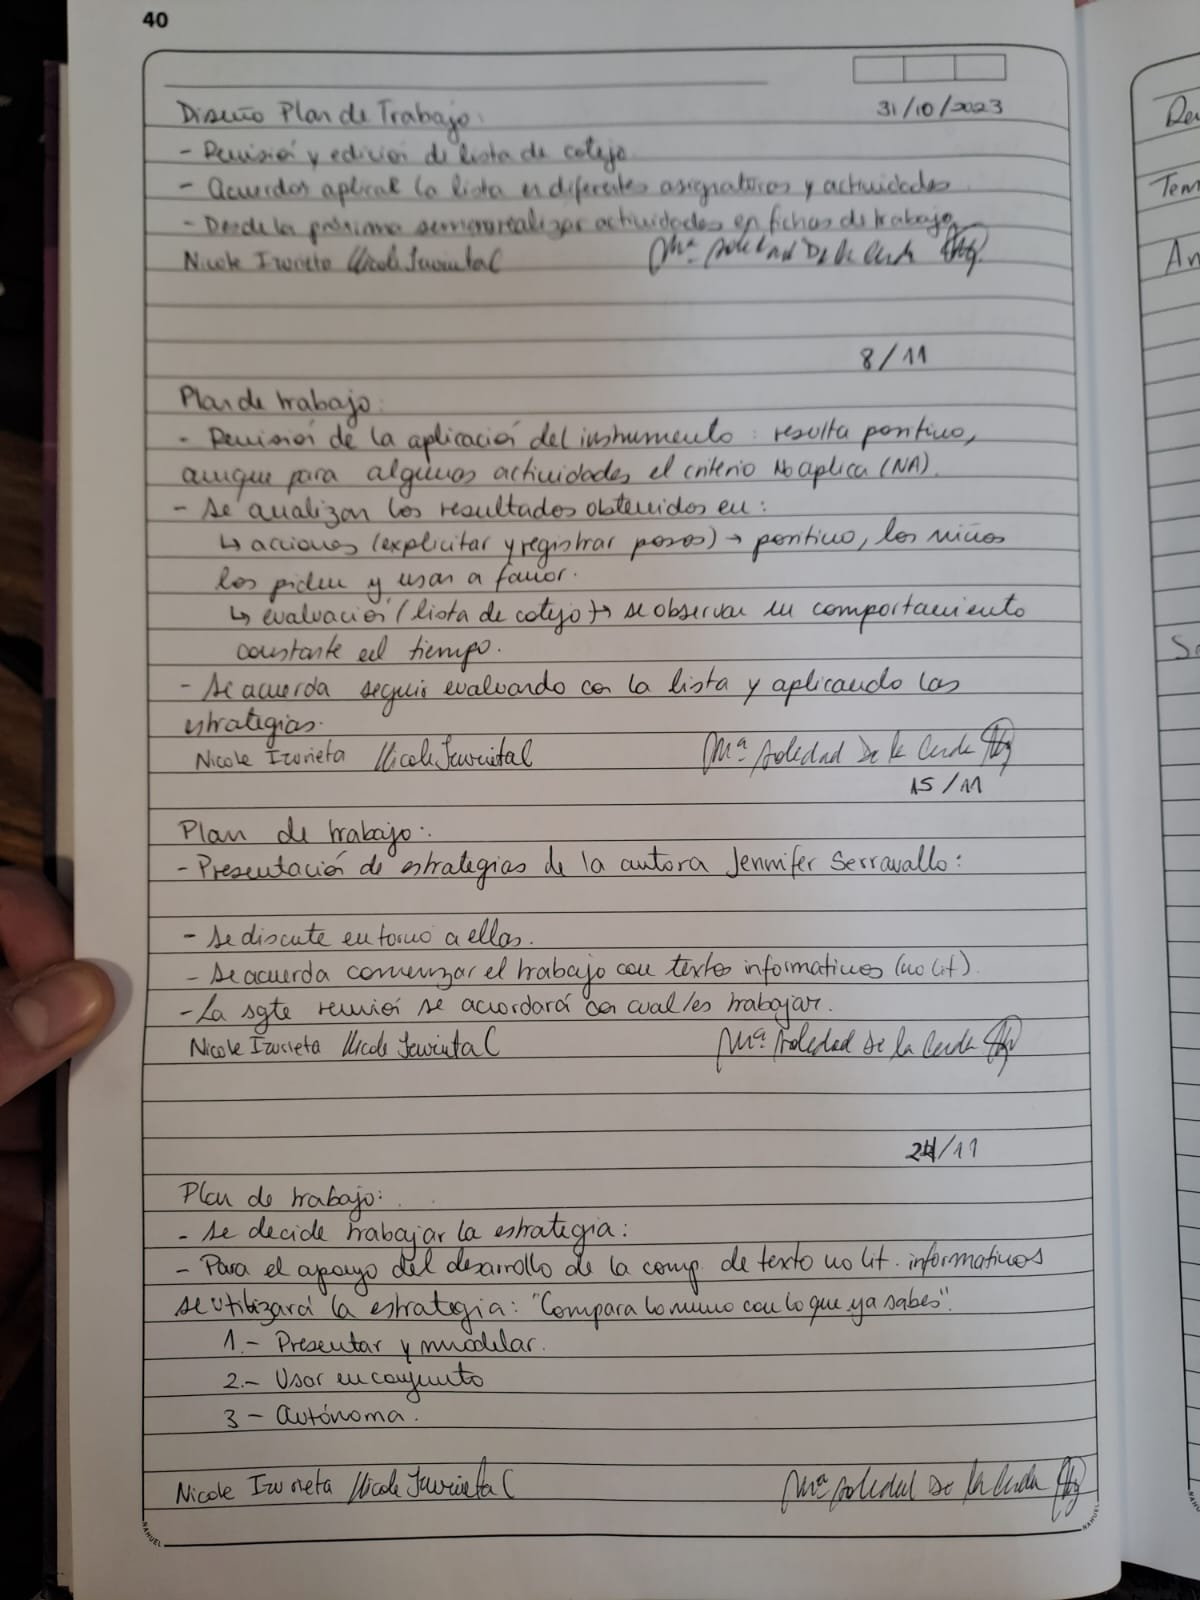 40
31/10/2023
Diseño Plan de Trabajo:
- Revisión y edición de lista de cotejo.
- Acuerdos aplicar la lista en diferentes asignaturas y actividades.
- Desde la próxima semana realizar actividades en fichas de trabajo.
Nicole Izurieta Nicole Izurieta C Mª Soledad De la Cerda
8/11
Plan de trabajo:
- Revisión de la aplicación del instrumento: resulta positivo,
aunque para algunas actividades el criterio No aplica (NA).
- Se analizan los resultados obtenidos en:
↳ acciones (explicitar y registrar pasos) → positivo, los niños
los piden y usan a favor.
↳ evaluación (lista de cotejo) → se observan un comportamiento
constante en el tiempo.
- Se acuerda seguir evaluando con la lista y aplicando las
estrategias.
Nicole Izurieta Nicole Izurieta C Mª Soledad De la Cerda
15/11
Plan de trabajo:
- Presentación de estrategias de la autora Jennifer Serravallo:
- Se discute en torno a ellas.
- Se acuerda comenzar el trabajo con textos informativos (no lit).
- La sgte reunión se acordará con cual/es trabajar.
Nicole Izurieta Nicole Izurieta C Mª Soledad De la Cerda
24/11
Plan de trabajo:
- Se decide trabajar la estrategia:
- Para el apoyo del desarrollo de la comp. de texto no lit. informativos
se utilizará la estrategia: "Compara lo nuevo con lo que ya sabes".
1.- Presentar y modelar.
2.- Usar en conjunto
3 - Autónoma.
Nicole Izurieta Nicole Izurieta C Mª Soledad De la Cerda
NAHUEL
NAHUEL